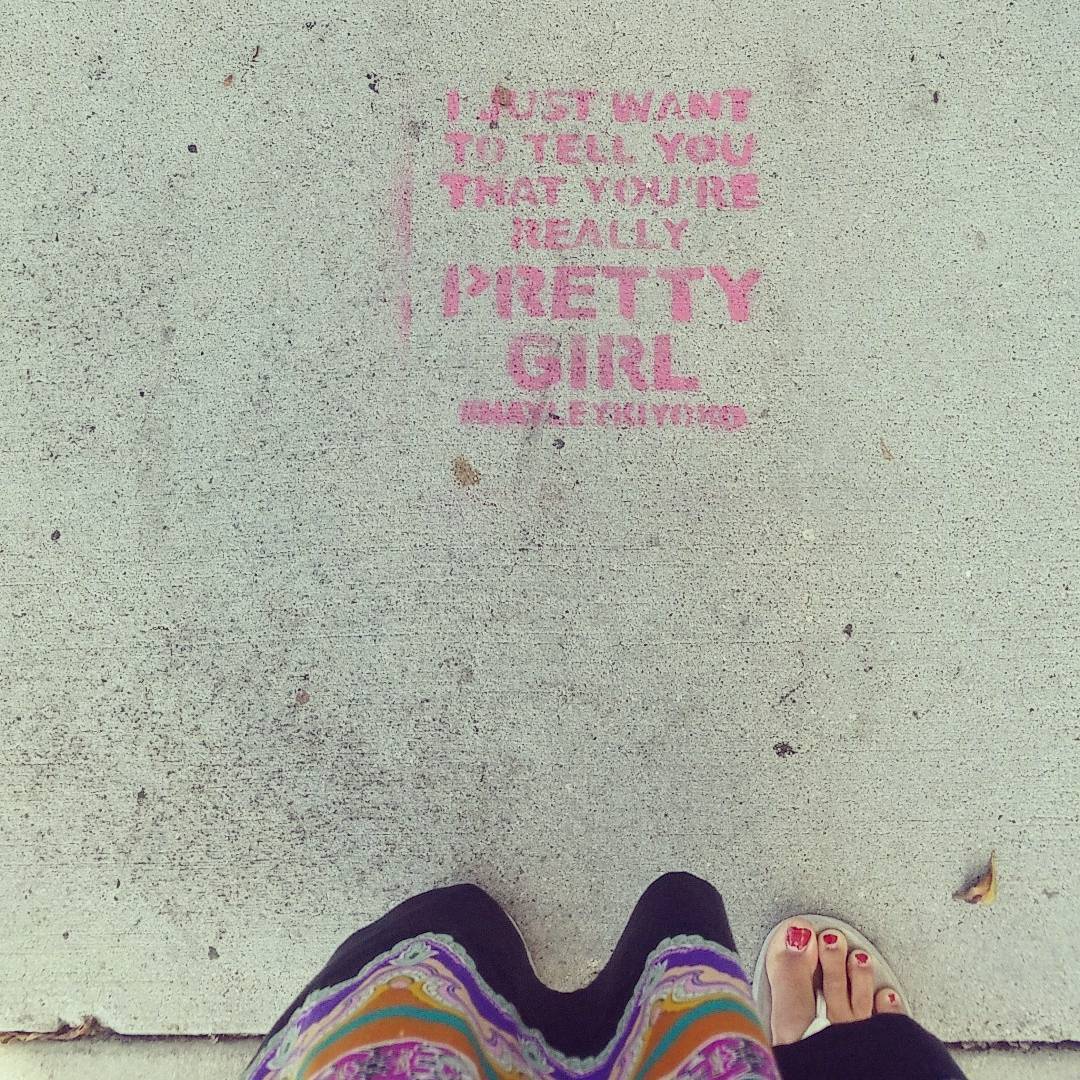 I JUST WANT
TO TELL YOU
THAT YOU'RE
REALLY
PRETTY
GIRL
#HAYLEYKIYOKO